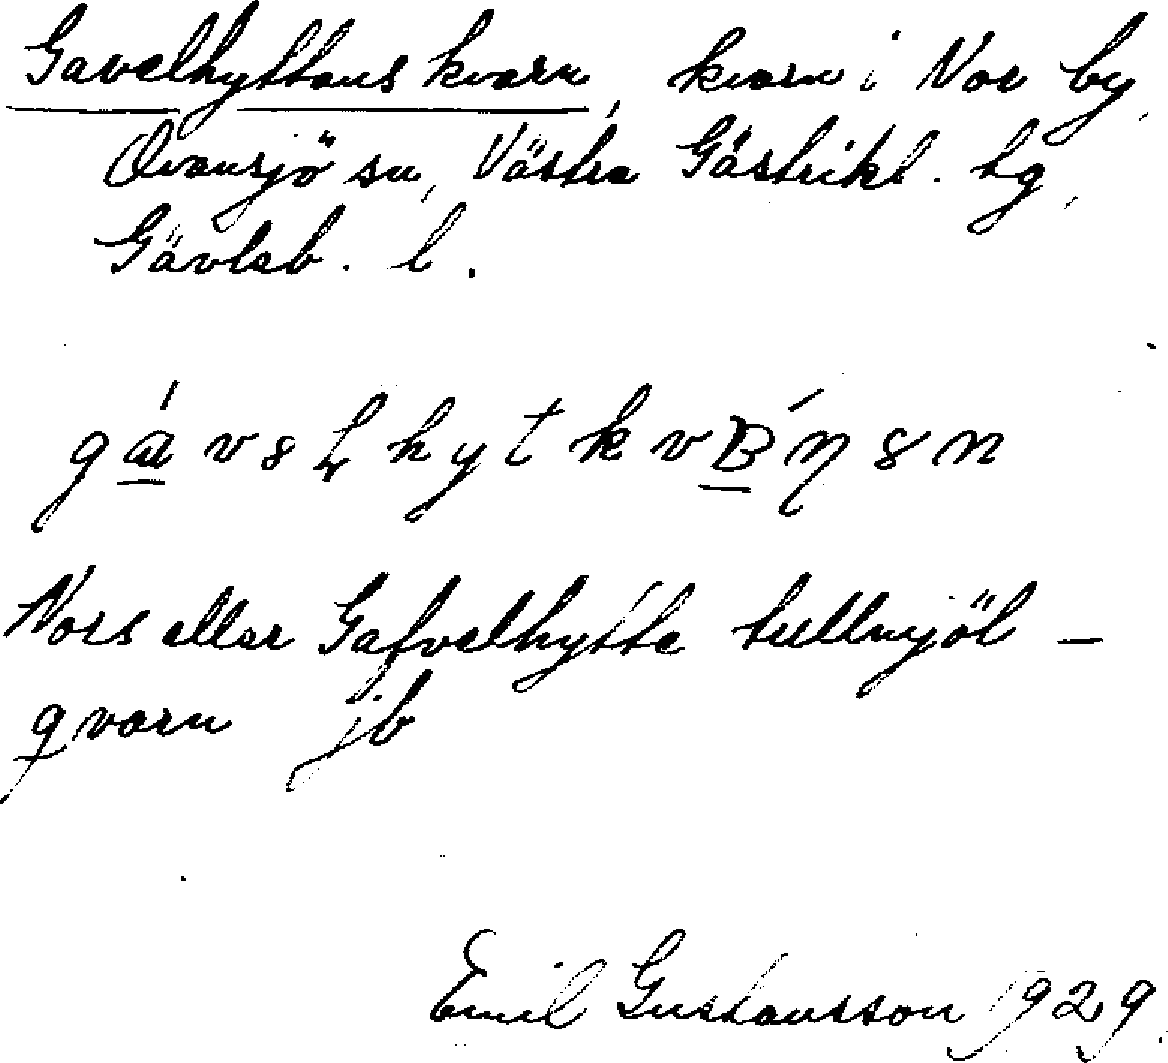 Gavelhyttans kvarn, kvarn i Nor by,
Ovansjö sn, Västra Gästrikl. tg,
Gävleb. l.
Nors eller Gafvelhytte tullmjöl-
qvarn jb
Emil Gustavsson 1929.